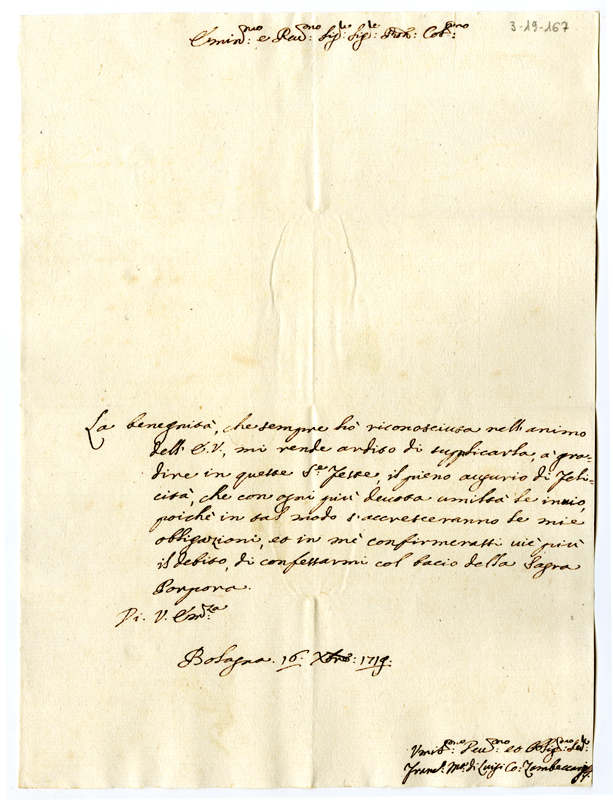 3-19-167
Emin.mo e Reu.mo Sig.re Sig.re Pron: Col.mo
La benegnità, che sempre hò riconosciuta nell'animo
dell'E.V., mi rende ardito di supplicarla, à gra-
dire in queste S.te Feste, il pieno augurio di feli-
cità, che con ogni più deuota umiltà le inuio,
poiche in tal modo s'accresceranno le mie
obbligazioni, et in mè confirmerassi uiè più
il debito, di confessarmi col bacio della Sagra
Porpora.
Di. V. Em.za
Bologna. 16. Xbre: 1719.
Vmil.mo Deu.mo et Obblig.mo Ser.re
Franc.o M.a di Luigi Co: Zambeccari